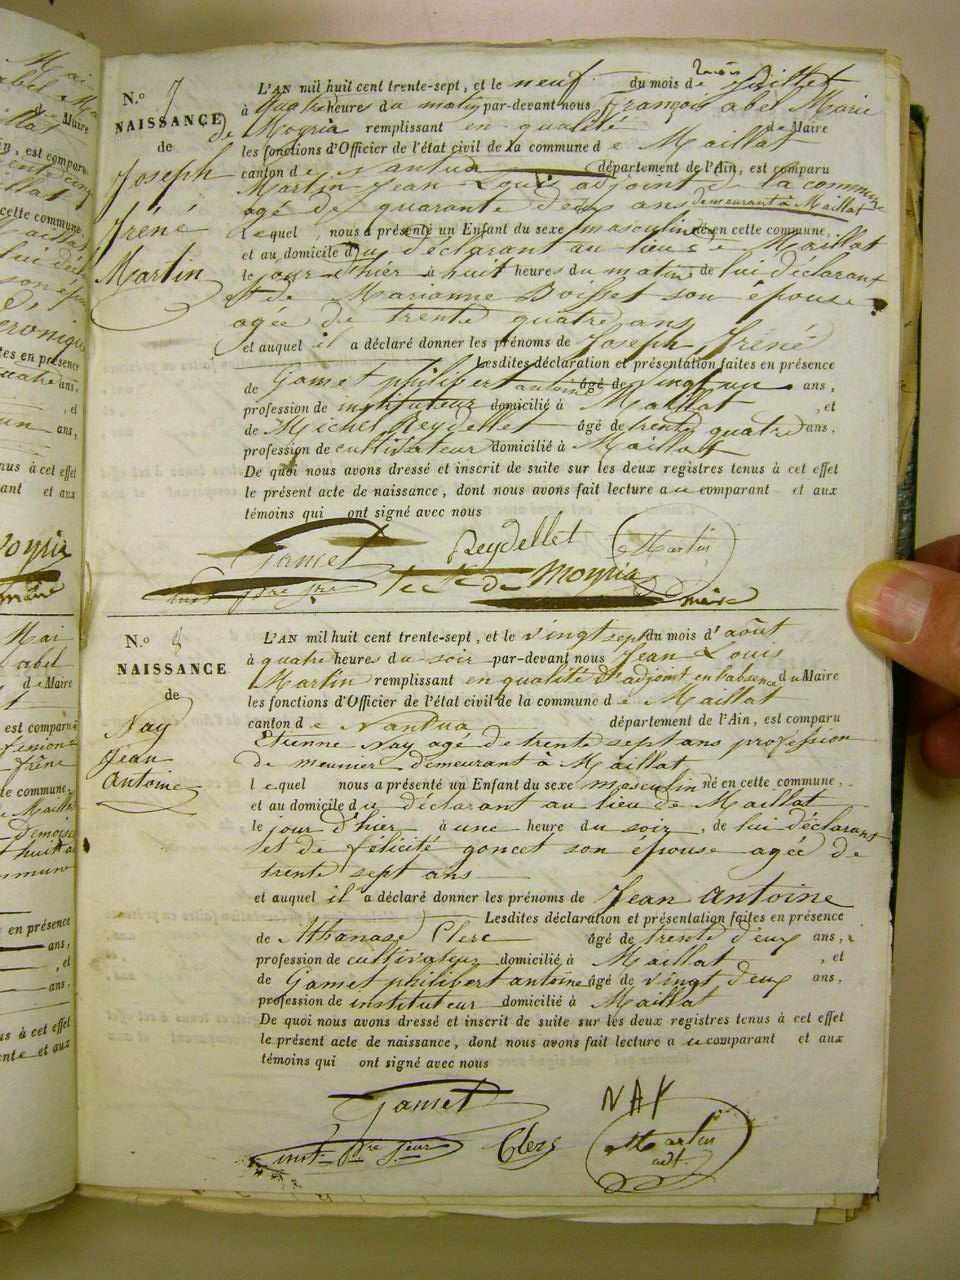 N.o 7
NAISSANCE
de
Joseph
Iréné
Martin
L'AN mil huit cent trente-sept, et le neuf du mois de Juillet
à quatre heures du matin par-devant nous François abel Marie
de Moyria remplissant en qualité de Maire
les fonctions d'Officier de l'état civil de la commune de Maillat
canton de Nantua département de l'Ain, est comparu
Martin Jean Louis adjoint de la commune
agé de quarante deux ans demeurant à Maillat
lequel nous a présenté un Enfant du sexe masculin né en cette commune,
et au domicile du déclarant au lieu de Maillat
le jour d'hier à huit heures du matin de lui déclarant
et de Marianne Boisset son épouse
agée de trente quatre ans
et auquel il a déclaré donner les prénoms de Joseph Iréné
Lesdites déclaration et présentation faites en présence
de Gamet philibert antoine âgé de vingt un ans,
profession de instituteur domicilié à Maillat , et
de Michel Reydellet âgé de trente quatre ans,
profession de cultivateur domicilié à Maillat
De quoi nous avons dressé et inscrit de suite sur les deux registres tenus à cet effet
le présent acte de naissance, dont nous avons fait lecture au comparant et aux
témoins qui ont signé avec nous
Gamet Reydellet Martin
de Moyria
maire
N.o 8
NAISSANCE
de
Nay
Jean
Antoine
L'AN mil huit cent trente-sept, et le vingt sept du mois d'août
à quatre heures du soir par-devant nous Jean Louis
Martin remplissant en qualité d'adjoint en l'absence du Maire
les fonctions d'Officier de l'état civil de la commune de Maillat
canton de Nantua département de l'Ain, est comparu
Etienne Nay agé de trente sept ans profession
de meunier demeurant à Maillat
lequel nous a présenté un Enfant du sexe masculin né en cette commune,
et au domicile du déclarant au lieu de Maillat
le jour d'hier à une heure du soir, de lui déclarant
et de félicité goncet son épouse agée de
trente sept ans
et auquel il a déclaré donner les prénoms de Jean Antoine
Lesdites déclaration et présentation faites en présence
de Athanase Clerc âgé de trente deux ans,
profession de cultivateur domicilié à Maillat , et
de Gamet philibert antoine âgé de vingt deux ans,
profession de instituteur domicilié à Maillat
De quoi nous avons dressé et inscrit de suite sur les deux registres tenus à cet effet
le présent acte de naissance, dont nous avons fait lecture au comparant et aux
témoins qui ont signé avec nous
Gamet NAY
Clerc Martin
adt.